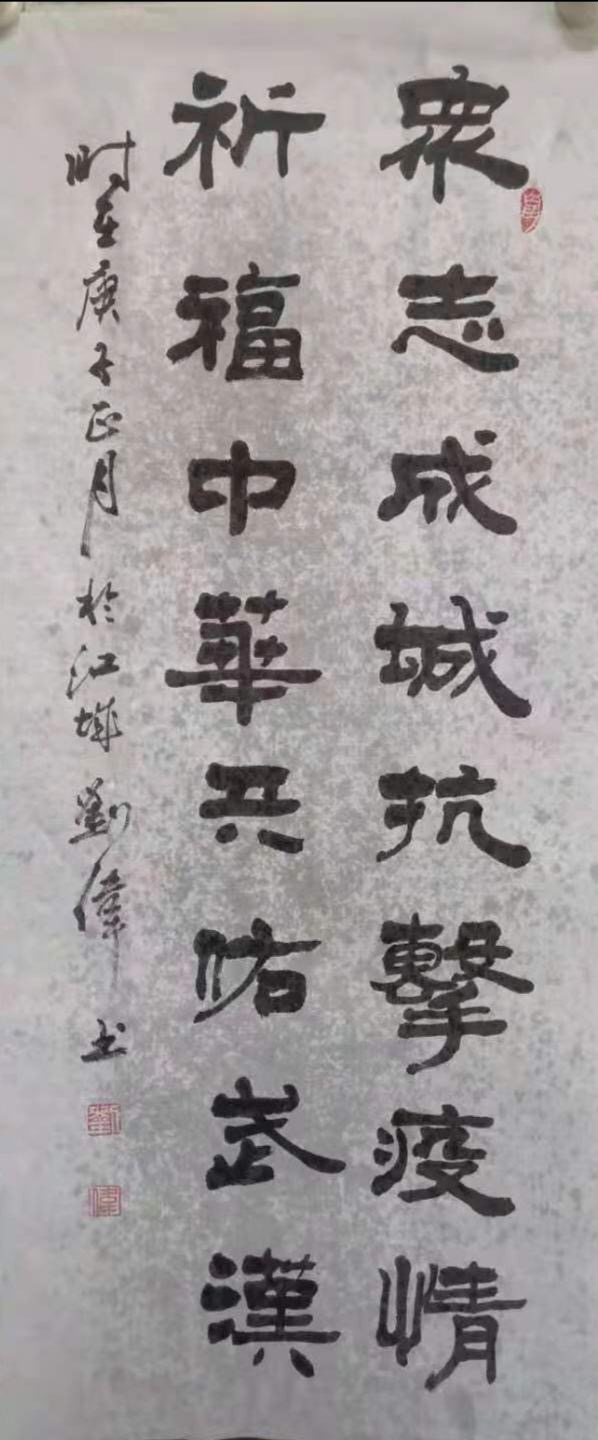 眾志成城抗擊疫情
祈福中華共佑武漢
时在庚子正月於江城劉偉书
劉
偉